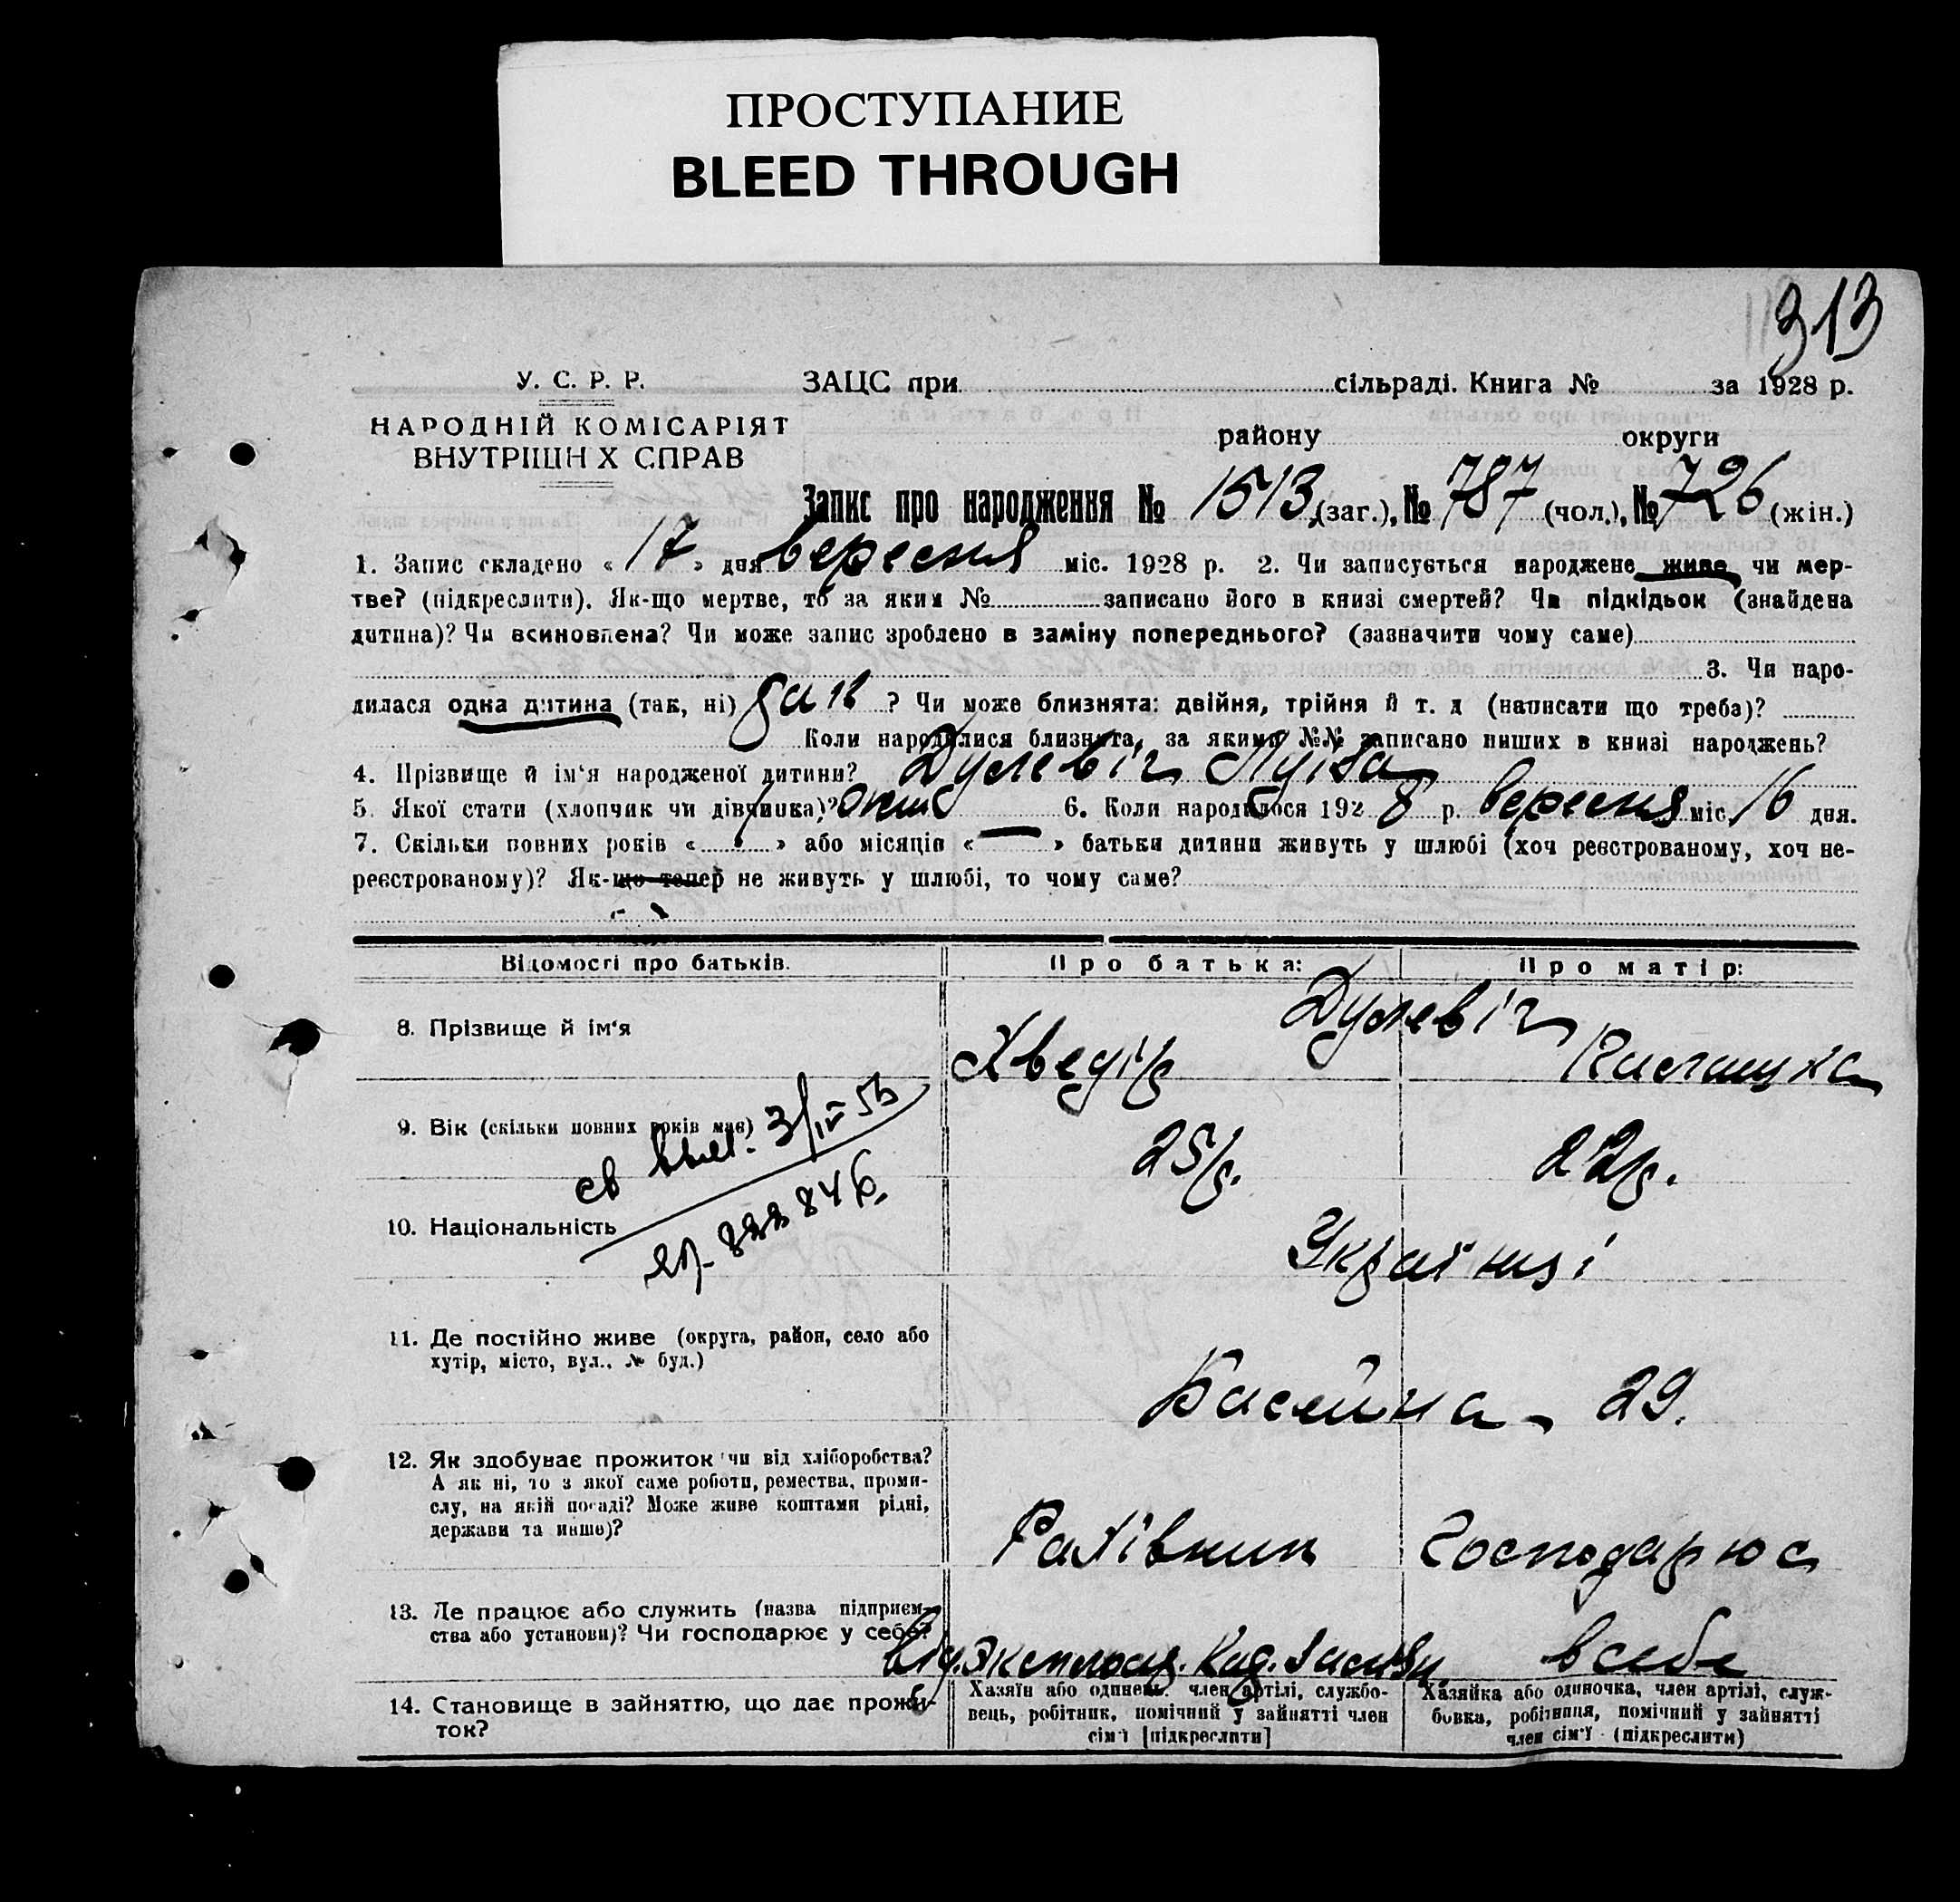 ПРОСТУПАНИЕ
BLEED THROUGH
313
У. С. Р. Р.
НАРОДНІЙ КОМІСАРІЯТ
ВНУТРІШН Х СПРАВ
ЗАЦС при сільраді. Книга № за 1928 р.
району округи
Запис про народження № 1513 (заг.), № 787 (чол.), № 726 (жін.)
1. Запис складено « 17 » дня вересня міс. 1928 р. 2. Чи записується народжене живе чи мер-
тве? (підкреслити). Як-що мертве, то за яким № записано його в книзі смертей? Чи підкідьок (знайдена
дитина)? Чи всиновлена? Чи може запис зроблено в заміну попереднього? (зазначити чому саме)
3. Чи наро-
дилася одна дитина (так, ні) ? Чи може близнята: двійня, трійня й т. д (написати що треба)?
Коли народилися близнята, за якими №№ записано инших в книзі народжень?
4. Прізвище й ім'я народженої дитини? Дулевіч Луіза
5. Якої стати (хлопчик чи дівчинка)? 6. Коли народилося 1928 р. вересня міс. 16 дня.
7. Скільки повних років « » або місяців « — » батьки дитини живуть у шлюбі (хоч реєстрованому, хоч не-
реєстрованому)? Як-що тепер не живуть у шлюбі, то чому саме?
Відомості про батьків. Про батька: Про матір:
Дулевіч
8. Прізвище й ім'я Хведір
9. Вік (скільки повних років має) 25 р. 22 р.
св выл. 3/IV 53
822846
10. Національність Українці
11. Де постійно живе (округа, район, село або
хутір, місто, вул., № буд.)
Басейна - 29.
12. Як здобуває прожиток чи від хліборобства?
А як ні, то з якої саме роботи, ремества, проми-
слу, на якій посаді? Може живе коштами рідні,
держави та инше)?
Рахівник Господарює
13. Де працює або служить (назва підприєм-
ства або установи)? Чи господарює у себе?
в себе
14. Становище в зайняттю, що дає прожи-
ток?
Хазяїн або одинець, член артілі, службо-
вець, робітник, помічний у зайнятті член
сім'ї [підкреслити]
Хазяйка або одиночка, член артілі, служ-
бовка, робітниця, помічний у зайнятті
член сім'ї (підкреслити)